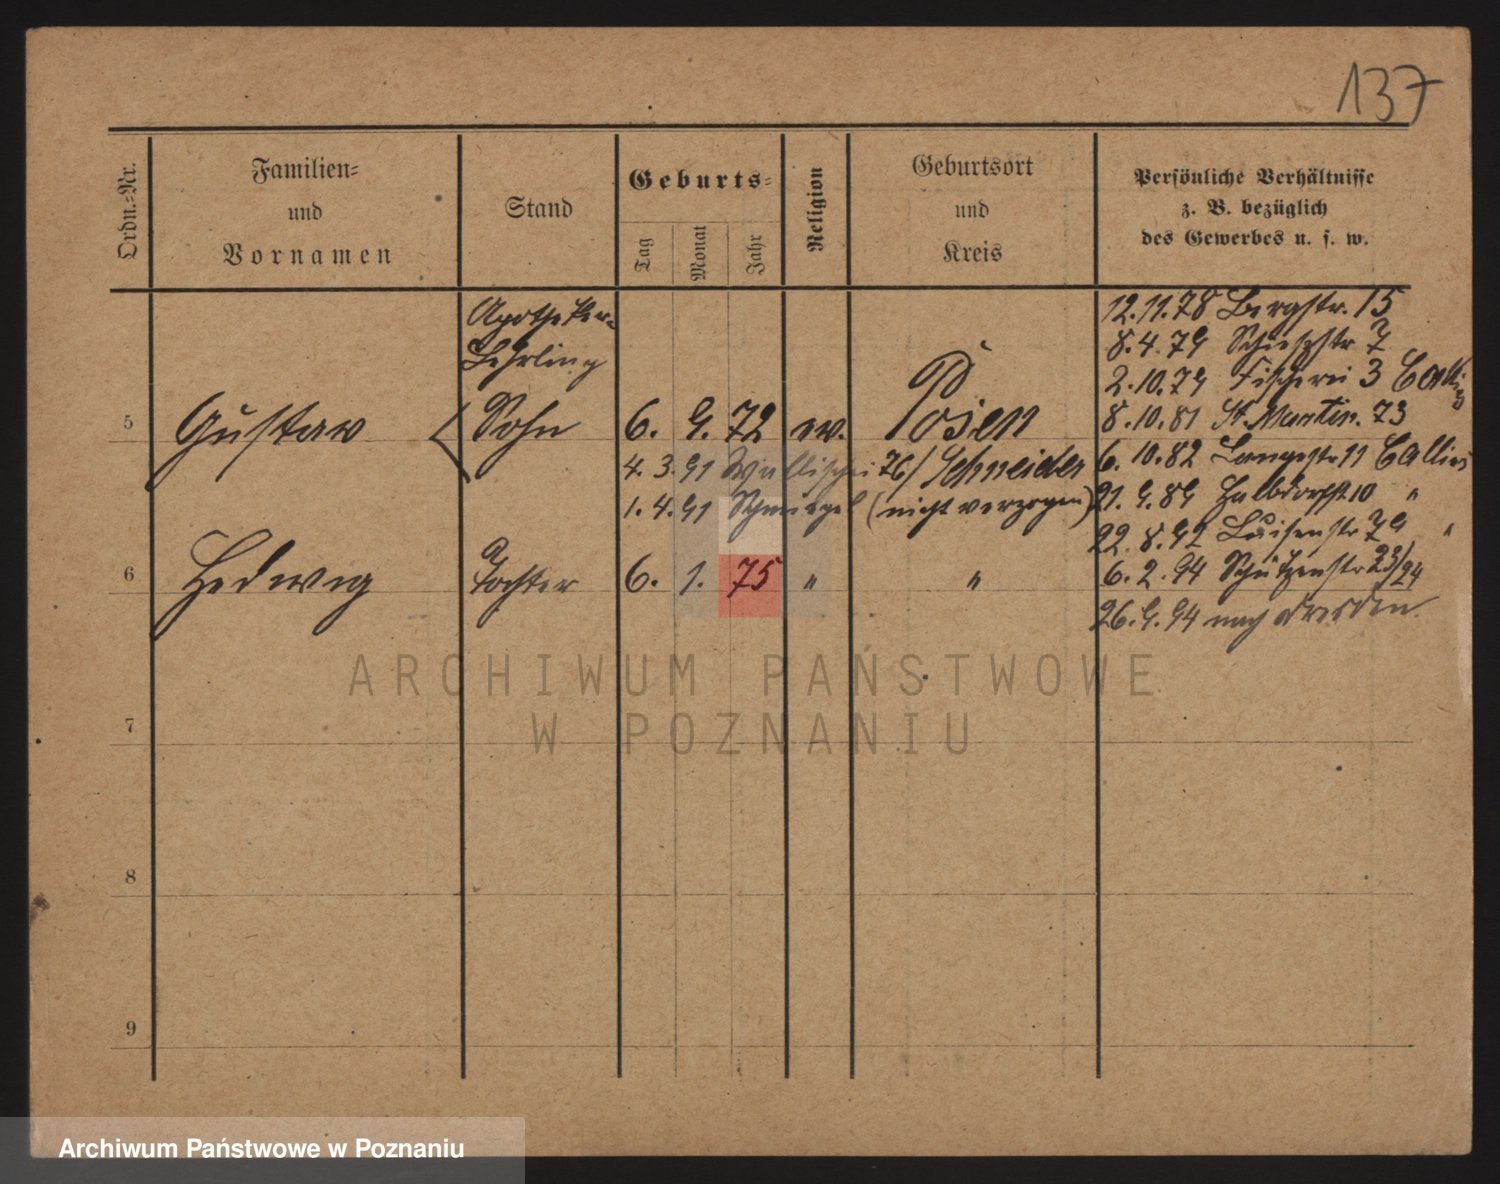 137
Ordn.-Nr.
Familien-
und
Vornamen
Stand
Geburts-
Tag
Monat
Jahr
Religion
Geburtsort
und
Kreis
Persönliche Verhältnisse
z. B. bezüglich
des Gewerbes u. s. w.
Apotheker-
Lehrling
5 Gustav Sohn 6. 9. 72 ev. Posen
4. 3. 91 Wallischei 76/ Schneider
1. 4. 91 Schmiegel (nicht verzogen)
6 Hedwig Tochter 6. 1. 75 " "
12.11.78 Bergstr. 15
8.4.79 Schießstr 7
2.10.79 Fischerei 3 Callies
8.10.81 St. Martin. 73
6.10.82 Langestr 11 Callies
21.9.89 Halbdorfstr 10 "
22.8.92 Luisenstr 79 "
6.2.94 Schützenstr 23/24
26.9.94 nach Dresden.
7
8
9
ARCHIWUM PAŃSTWOWE
W POZNANIU
Archiwum Państwowe w Poznaniu